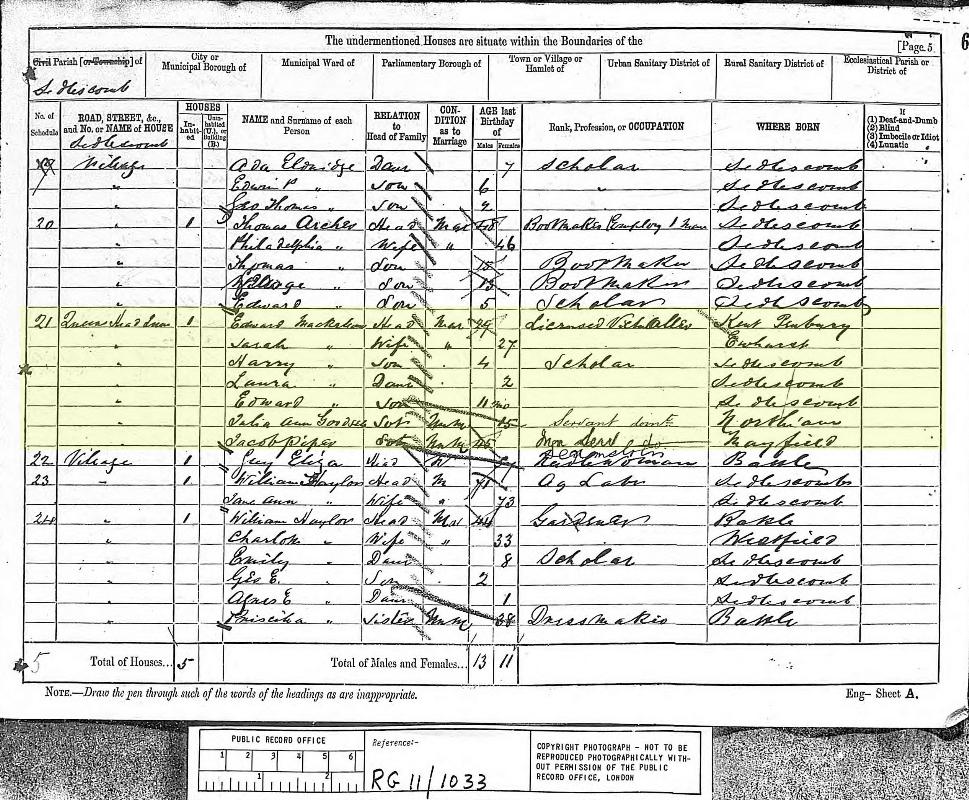 The undermentioned Houses are situate within the Boundaries of the
[Page 5
6
Civil Parish [or Township] of
City or Municipal Borough of
Municipal Ward of
Parliamentary Borough of
Town or Village or Hamlet of
Urban Sanitary District of
Rural Sanitary District of
Ecclesiastical Parish or District of
Sedlescomb
No. of Schedule
ROAD, STREET, &c., and No. or NAME of HOUSE
HOUSES
Inhabited
Uninhabited (U.), or Building (B.)
NAME and Surname of each Person
RELATION to Head of Family
CONDITION as to Marriage
AGE last Birthday of
Males
Females
Rank, Profession, or OCCUPATION
WHERE BORN
If
(1) Deaf-and-Dumb
(2) Blind
(3) Imbecile or Idiot
(4) Lunatic
Sedlescomb
19 Village Ada Eldridge Daur 7 Scholar Sedlescomb
" Edwin P " Son 6 " Sedlescomb
" Geo Thomas " Son 2 Sedlescomb
20 " 1 Thomas Archer Head Mar 48 Boot Maker Employ 1 Man Sedlescomb
" Philadelphia " Wife " 46 Sedlescomb
" Thomas " Son 15 Boot Maker Sedlescomb
" " Son 13 Boot Maker Sedlescomb
" Edward " Son 5 Scholar Sedlescomb
21 Queens Head Inn 1 Edward Head Mar 29 Licensed Victualler Kent Pembury
" Sarah " Wife " 27 Ewhurst
" Harry " Son 4 Scholar Sedlescomb
" Laura " Daur 2 Sedlescomb
" Edward " Son 11 mo Sedlescomb
" Julia Ann Servt Unm 15 Servant domtc Northiam
" Jacob Pipes Unm Mayfield
22 Village 1 Guy Eliza Head W Battle
23 " 1 William Naylor Head M 71 Ag Labr Sedlescomb
Jane Ann " Wife " 73 Sedlescomb
24 " 1 William Naylor Head Mar 44 Gardener Battle
" Charlott " Wife " 33 Westfield
" Emily " Daur 8 Scholar Sedlescomb
" Geo E. " Son 2 Sedlescomb
" Agnes E " Daur 1 Sedlescomb
" Priscilla " Sister Unm 38 Dressmaker Battle
5 Total of Houses... 5 Total of Males and Females... 13 11
NOTE.—Draw the pen through such of the words of the headings as are inappropriate.
Eng— Sheet A.
PUBLIC RECORD OFFICE
1 2 3 4 5 6
1 2
Reference:-
RG 11/1033
COPYRIGHT PHOTOGRAPH - NOT TO BE
REPRODUCED PHOTOGRAPHICALLY WITH-
OUT PERMISSION OF THE PUBLIC
RECORD OFFICE, LONDON